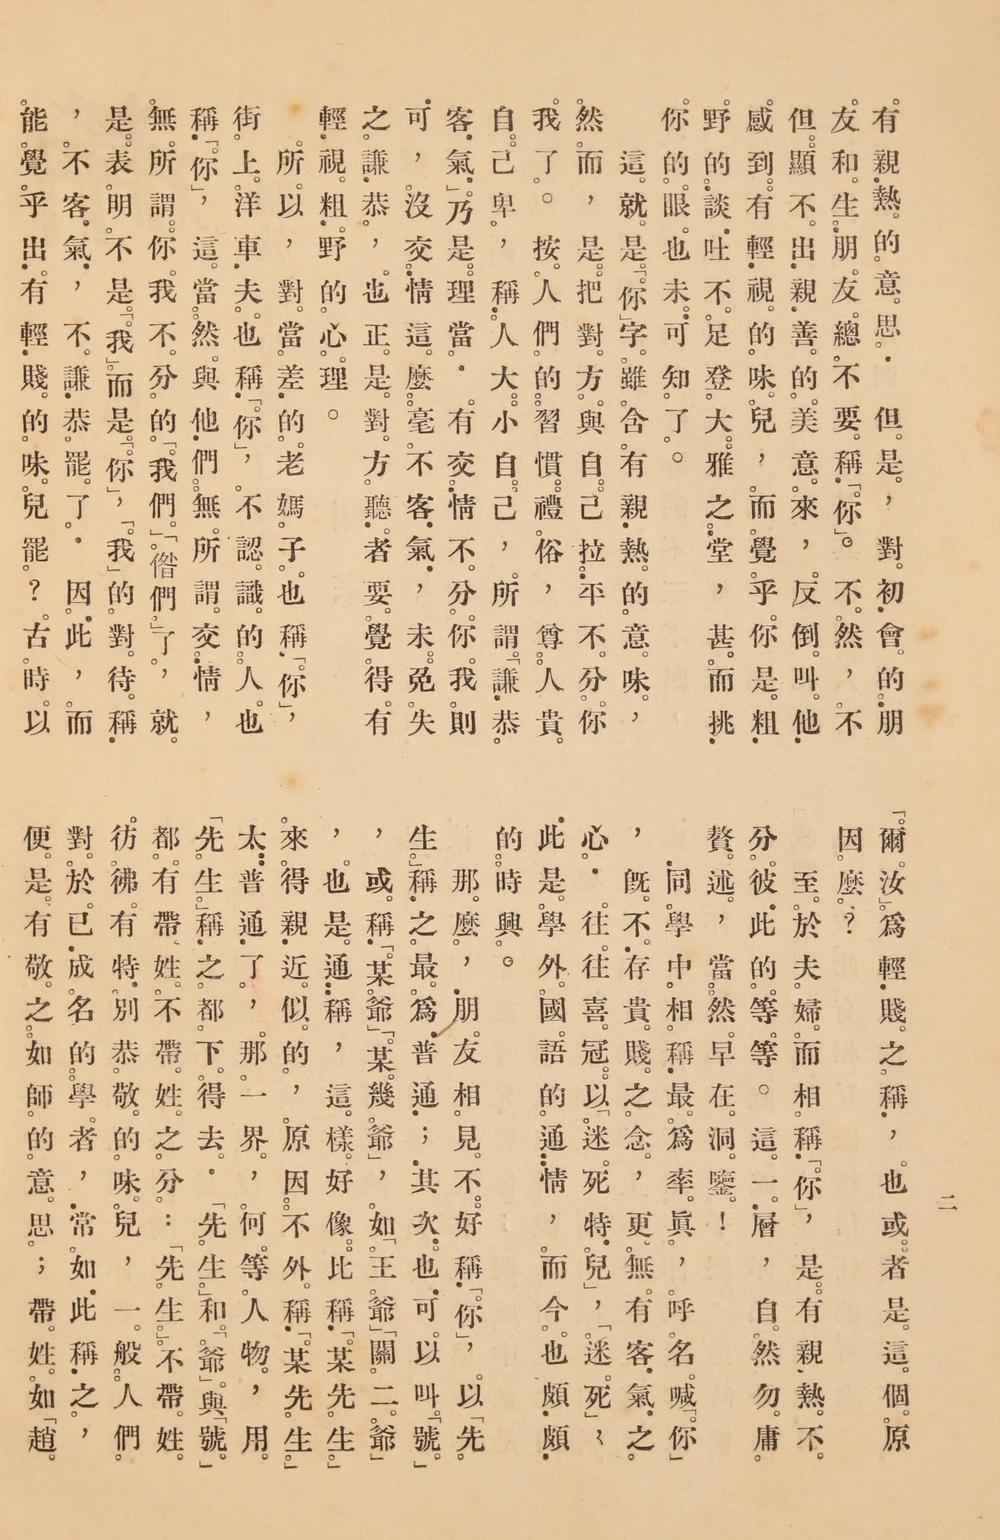 有親熱的意思．但是，對初會的朋
友和生朋友總不要稱「你」。不然，不
但顯不出親善的美意來，反倒叫他
感到有輕視的味兒，而覺乎你是粗
野的談吐不足登大雅之堂，甚而挑
你的眼也未可知了。
這就是「你」字雖含有親熱的意味，
然而，是把對方與自己拉平不分你
我了。按人們的習慣禮俗，尊人貴
自己卑，稱人大小自己，所謂「謙恭
客氣」乃是理當．有交情不分你我則
可，沒交情這麼毫不客氣，未免失
之謙恭，也正是對方聽者要覺得有
輕視粗野的心理。
所以，對當差的老媽子也稱「你」，
街上洋車夫也稱「你」，不認識的人也
稱「你」，這當然與他們無所謂交情，
無所謂你我不分的「我們」「偺們」了，就
是表明不是「我」而是「你」，「我」的對待稱
，不客氣，不謙恭罷了．因此，而
能覺乎出有輕賤的味兒罷？古時以
「爾汝」爲輕賤之稱，也或者是這個原
因麼？
至於夫婦而相稱「你」，是有親熱不
分彼此的等等。這一層，自然勿庸
贅述，當然早在洞鑒！
同學中相稱最爲率眞，呼名喊「你」
，旣不存貴賤之念，更無有客氣之
心．往往喜冠以「迷死特兒」，「迷死」，
此是學外國語的通情，而今也頗頗
的時興。
那麼，朋友相見不好稱「你」，以「先
生」稱之最爲普通；其次也可以叫「號」
，或稱「某爺」「某幾爺」，如「王爺」「關二爺
，也是通稱，這樣好像比稱「某先生」
來得親近似的，原因不外稱「某先生」
太普通了，那一界，何等人物，用
「先生」稱之都下得去．「先生」和「爺」與「號」
都有帶姓不帶姓之分：「先生」不帶姓
彷彿有特別恭敬的味兒，一般人們
對於已成名的學者，常如此稱之，
便是有敬之如師的意思；帶姓如「趙
二